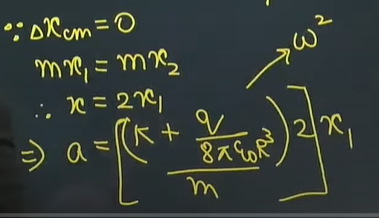 ∵ Δx_cm = 0
mx₁ = mx₂
ω²
∴ x = 2x₁
⇒ a = [(K + q/(8πε₀R³))2/m] x₁